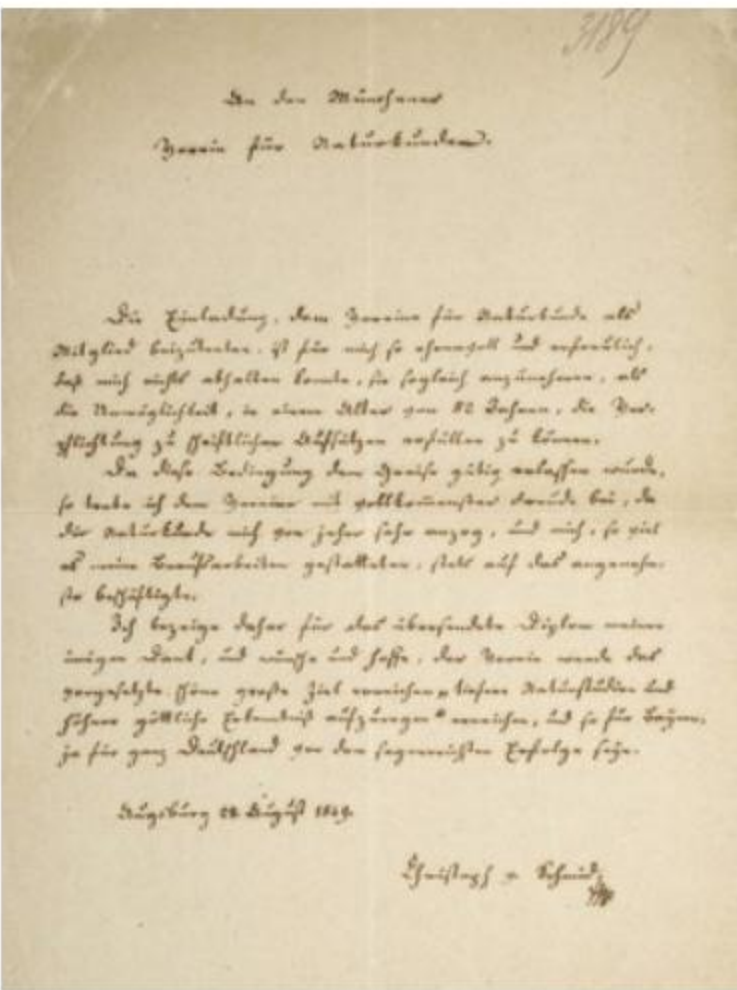 3189
An den Münchener
Verein für Naturkunde.
Die Einladung, dem Vereine für Naturkunde als
Mitglied beizutreten, ist für mich so ehrenvoll und erfreulich,
daß mich nichts abhalten konnte, sie sogleich anzunehmen, als
die Unmöglichkeit, in einem Alter von 82 Jahren, die Ver-
pflichtung zu schriftlichen Aufsätzen erfüllen zu können.
Da diese Bedingung dem Greise gütig erlassen wurde,
so trete ich dem Vereine mit vollkommenster Freude bei, da
die Naturkunde mich von jeher sehr anzog, und mich, so viel
es meine Berufsarbeiten gestatteten, stets auf das angenehm-
ste beschäftigte.
Ich bezeige daher für das übersendete Diplom meinen
innigen Dank, und wünsche und hoffe, der Verein werde das
vorgesetzte schöne große Ziel erreichen „tiefere Naturstudien und
höhere göttliche Erkenntniß aufzuregen“ erreichen, und so für Bayern,
ja für ganz Deutschland von den segenreichsten Erfolge seyn.
Augsburg August 1849.
Christoph v. Schmid